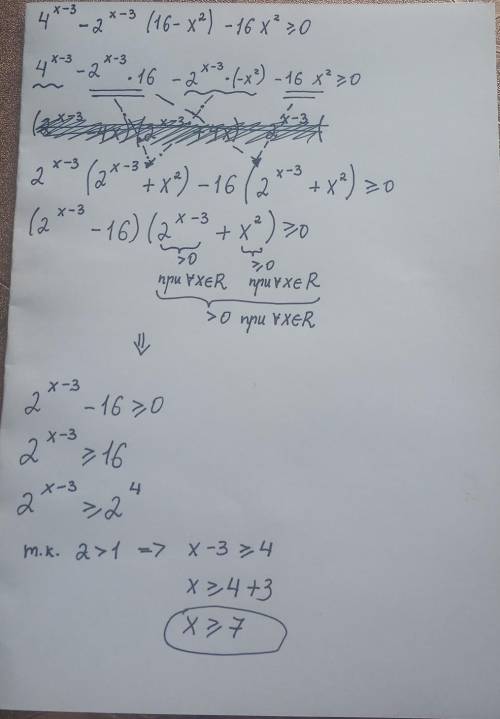 4^{x-3} - 2^{x-3} (16 - x²) - 16 x² ≥ 0
4^{x-3} - 2^{x-3} · 16 - 2^{x-3} · (-x²) - 16 x² ≥ 0
2^{x-3} (2^{x-3} + x²) - 16 (2^{x-3} + x²) ≥ 0
(2^{x-3} - 16) (2^{x-3} + x²) ≥ 0
>0 ≥0
при ∀x∈R при ∀x∈R
>0 при ∀x∈R
⇓
2^{x-3} - 16 ≥ 0
2^{x-3} ≥ 16
2^{x-3} ≥ 2^4
т.к. 2 > 1 => x - 3 ≥ 4
x ≥ 4 + 3
x ≥ 7